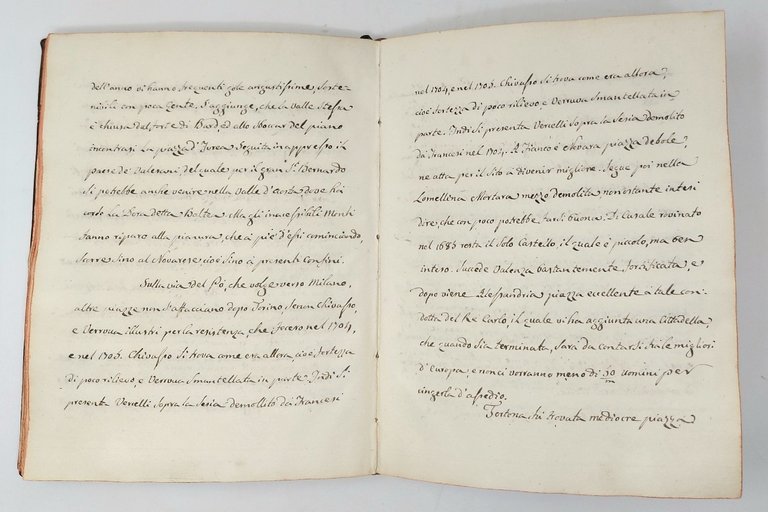 dell'anno vi hanno frequenti gole angustissime, soste-
nibili con poca gente. S'aggiunge, che la Valle stessa
è chiusa dal forte di Bard, ed allo sboccar del piano
incontrasi la piazza d'Ivrea. Seguita in appresso il
paese de' Valesani, del quale per il gran S.n Bernardo
si potrebbe anche venire nella Valle d'Aosta, dove ha
corso la Dora detta Baltea. Ma gli inaccessibili Monti
fanno riparo alla pianura, che a piè d'essi cominciando,
scorre sino al Novarese, cioè sino a' presenti Confini.
Sulla via del Pò, che volge verso Milano,
altre piazze non s'affacciano dopo Torino, senon Chivasso,
e Verrua illustri per la resistenza, che fecero nel 1704,
e nel 1705. Chivasso si trova come era allora, cioè fortezza
di poco rilievo, e Verrua smantellata in parte. Indi si
presenta Vercelli sopra la Sesia demolito dai Francesi
nel 1704, e nel 1705. Chivasso si trova come era allora,
cioè fortezza di poco rilievo e Verrua smantellata in
parte. Indi si presenta Vercelli sopra la Sesia demolito
da Francesi nel 1704. A fianco è Novara piazza debole,
ne atta per il sito a divenir migliore. Segue poi nella
Lomellina Mortara mezzo demolita nonostante intesi
dire, che con poco potrebbe farsi buona. Di Casale rovinato
nel 1685 resta il solo Castello, il quale è piccolo, ma ben
intero. Succede Valenza bastantemente fortificata, e
dopo viene Alessandria piazza eccellente a tale con-
dotta del Re Carlo, il quale vi ha aggiunta una Cittadella,
che quando sia terminata, sarà da contarsi fra le migliori
d'Europa, e non ci vorranno meno di 30 m uomini per
cingerla d'assedio.
Tortona hò trovata mediocre piazza